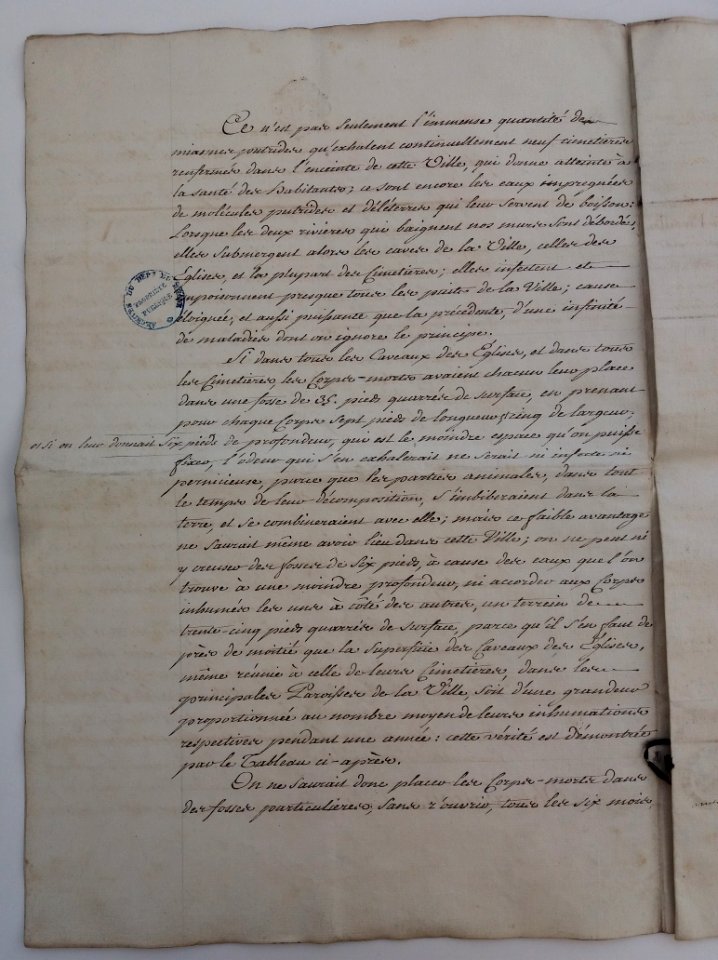 Ce n'est pas seulement l'immense quantité de
miasmes putrides qu'exhalent continuellement neuf cimetieres
renfermés dans l'enceinte de cette Ville, qui donne atteinte à
la santé des Habitants; ce sont encore les eaux impregnées
de molécules putrides et déléteres qui leur servent de boisson:
Lorsque les deux rivières qui baignent nos murs sont débordés,
elles submergent alors les caves de la Ville, celles des
Eglises, et la plupart des Cimetieres; elles infectent et
empoisonnent presque tous les puits de la Ville; cause
éloignée, et aussi puissante que la précédente, d'une infinité
de maladies dont on ignore le principe.
Si dans tous les Caveaux des Eglises, et dans tous
les Cimetieres, les Corps-morts avaient chacun leur place
dans une fosse de 35. pieds quarrés de surface, en prenant
pour chaque Corps sept pieds de longueur, cinq de largeur,
et si on leur donnait six pieds de profondeur, qui est le moindre espace qu'on puisse
fixer, l'odeur qui s'en exhalerait ne serait ni infecte ni
pernicieuse, parce que les parties animales, dans tout
le temps de leur décomposition, s'imbiberaient dans la
terre, et se combineraient avec elle; mais ce faible avantage
ne saurait même avoir lieu dans cette Ville; on ne peut ni
y creuser des fosses de six pieds, à cause des eaux que l'on
trouve à une moindre profondeur, ni accorder aux Corps
inhumés les uns à côté des autres, un terrein de
trente-cinq pieds quarrés de surface, parce qu'il s'en faut de
près de moitié que la superficie des Caveaux des Eglises,
même réunie à celle de leurs Cimetieres, dans les
principales Paroisses de la Ville, soit d'une grandeur
proportionnée au nombre moyen de leurs inhumations
respectives pendant une année: cette vérité est démontrée
par le Tableau ci-après.
On ne saurait donc placer les Corps-morts dans
des fosses particulieres, sans r'ouvrir, tous les six mois,
ARCHIVES DU DEPT DE
PROPRIETE
PUBLIQUE